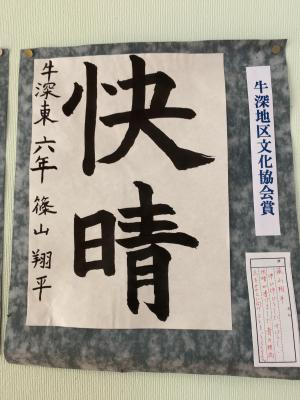 牛深地区文化協会賞
快晴
牛深東 六年 篠山 翔平